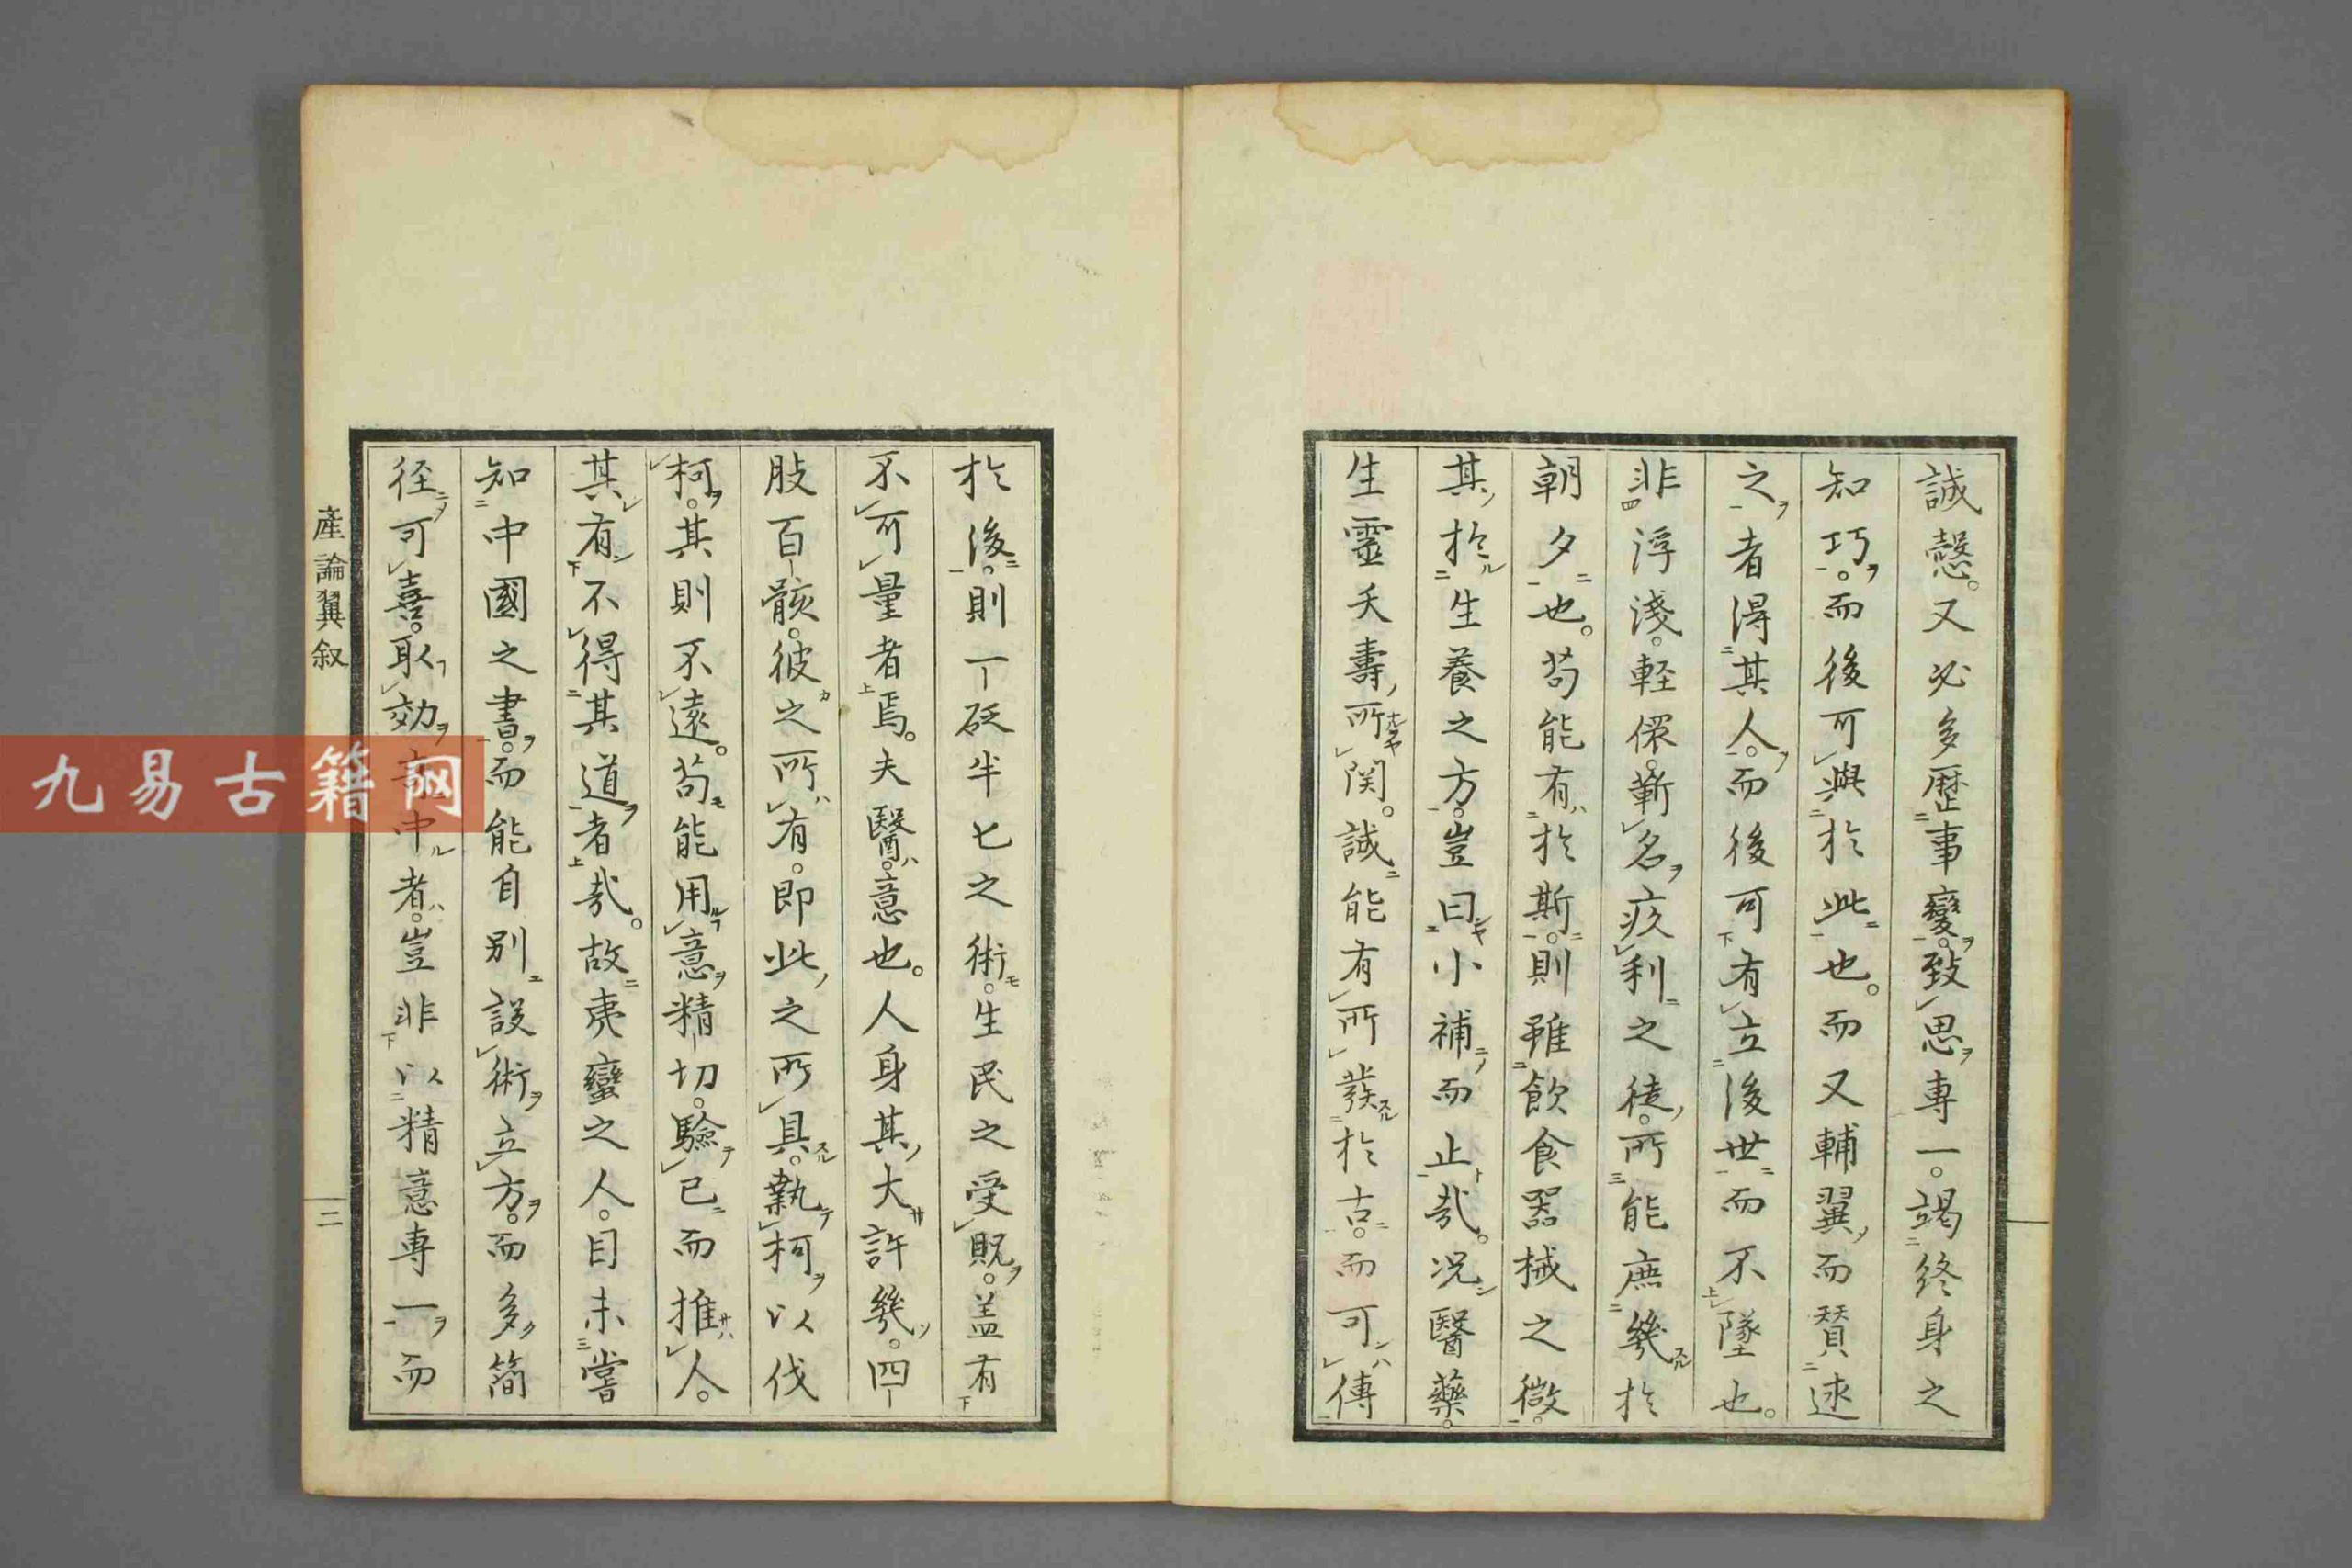 誠慤。又必多歴事變。致思專一。竭終身之
知巧。而後可與於此也。而又輔翼而賛述
之者得其人。而後可有立後世而不墜也。
非浮淺。輕儇。蘄名疚利之徒。所能庶幾於
朝夕也。苟能有於斯。則雖飲食器械之微。
其於生養之方。豈曰小補而止哉。况醫藥。
生靈夭壽所関。誠能有所發於古。而可傳
於後。則一砭半匕之術。生民之受貺。盖有
不可量者焉。夫醫。意也。人身其大許幾。四
肢百骸。彼之所有。即此之所具。執柯以伐
柯。其則不遠。苟能用意精切。驗已而推人。
其有不得其道者哉。故夷蠻之人。目未嘗
知中國之書。而能自別設術立方。而多簡
径可喜。取効中者。豈非以精意專一而
產論翼叙
三
九易古籍网